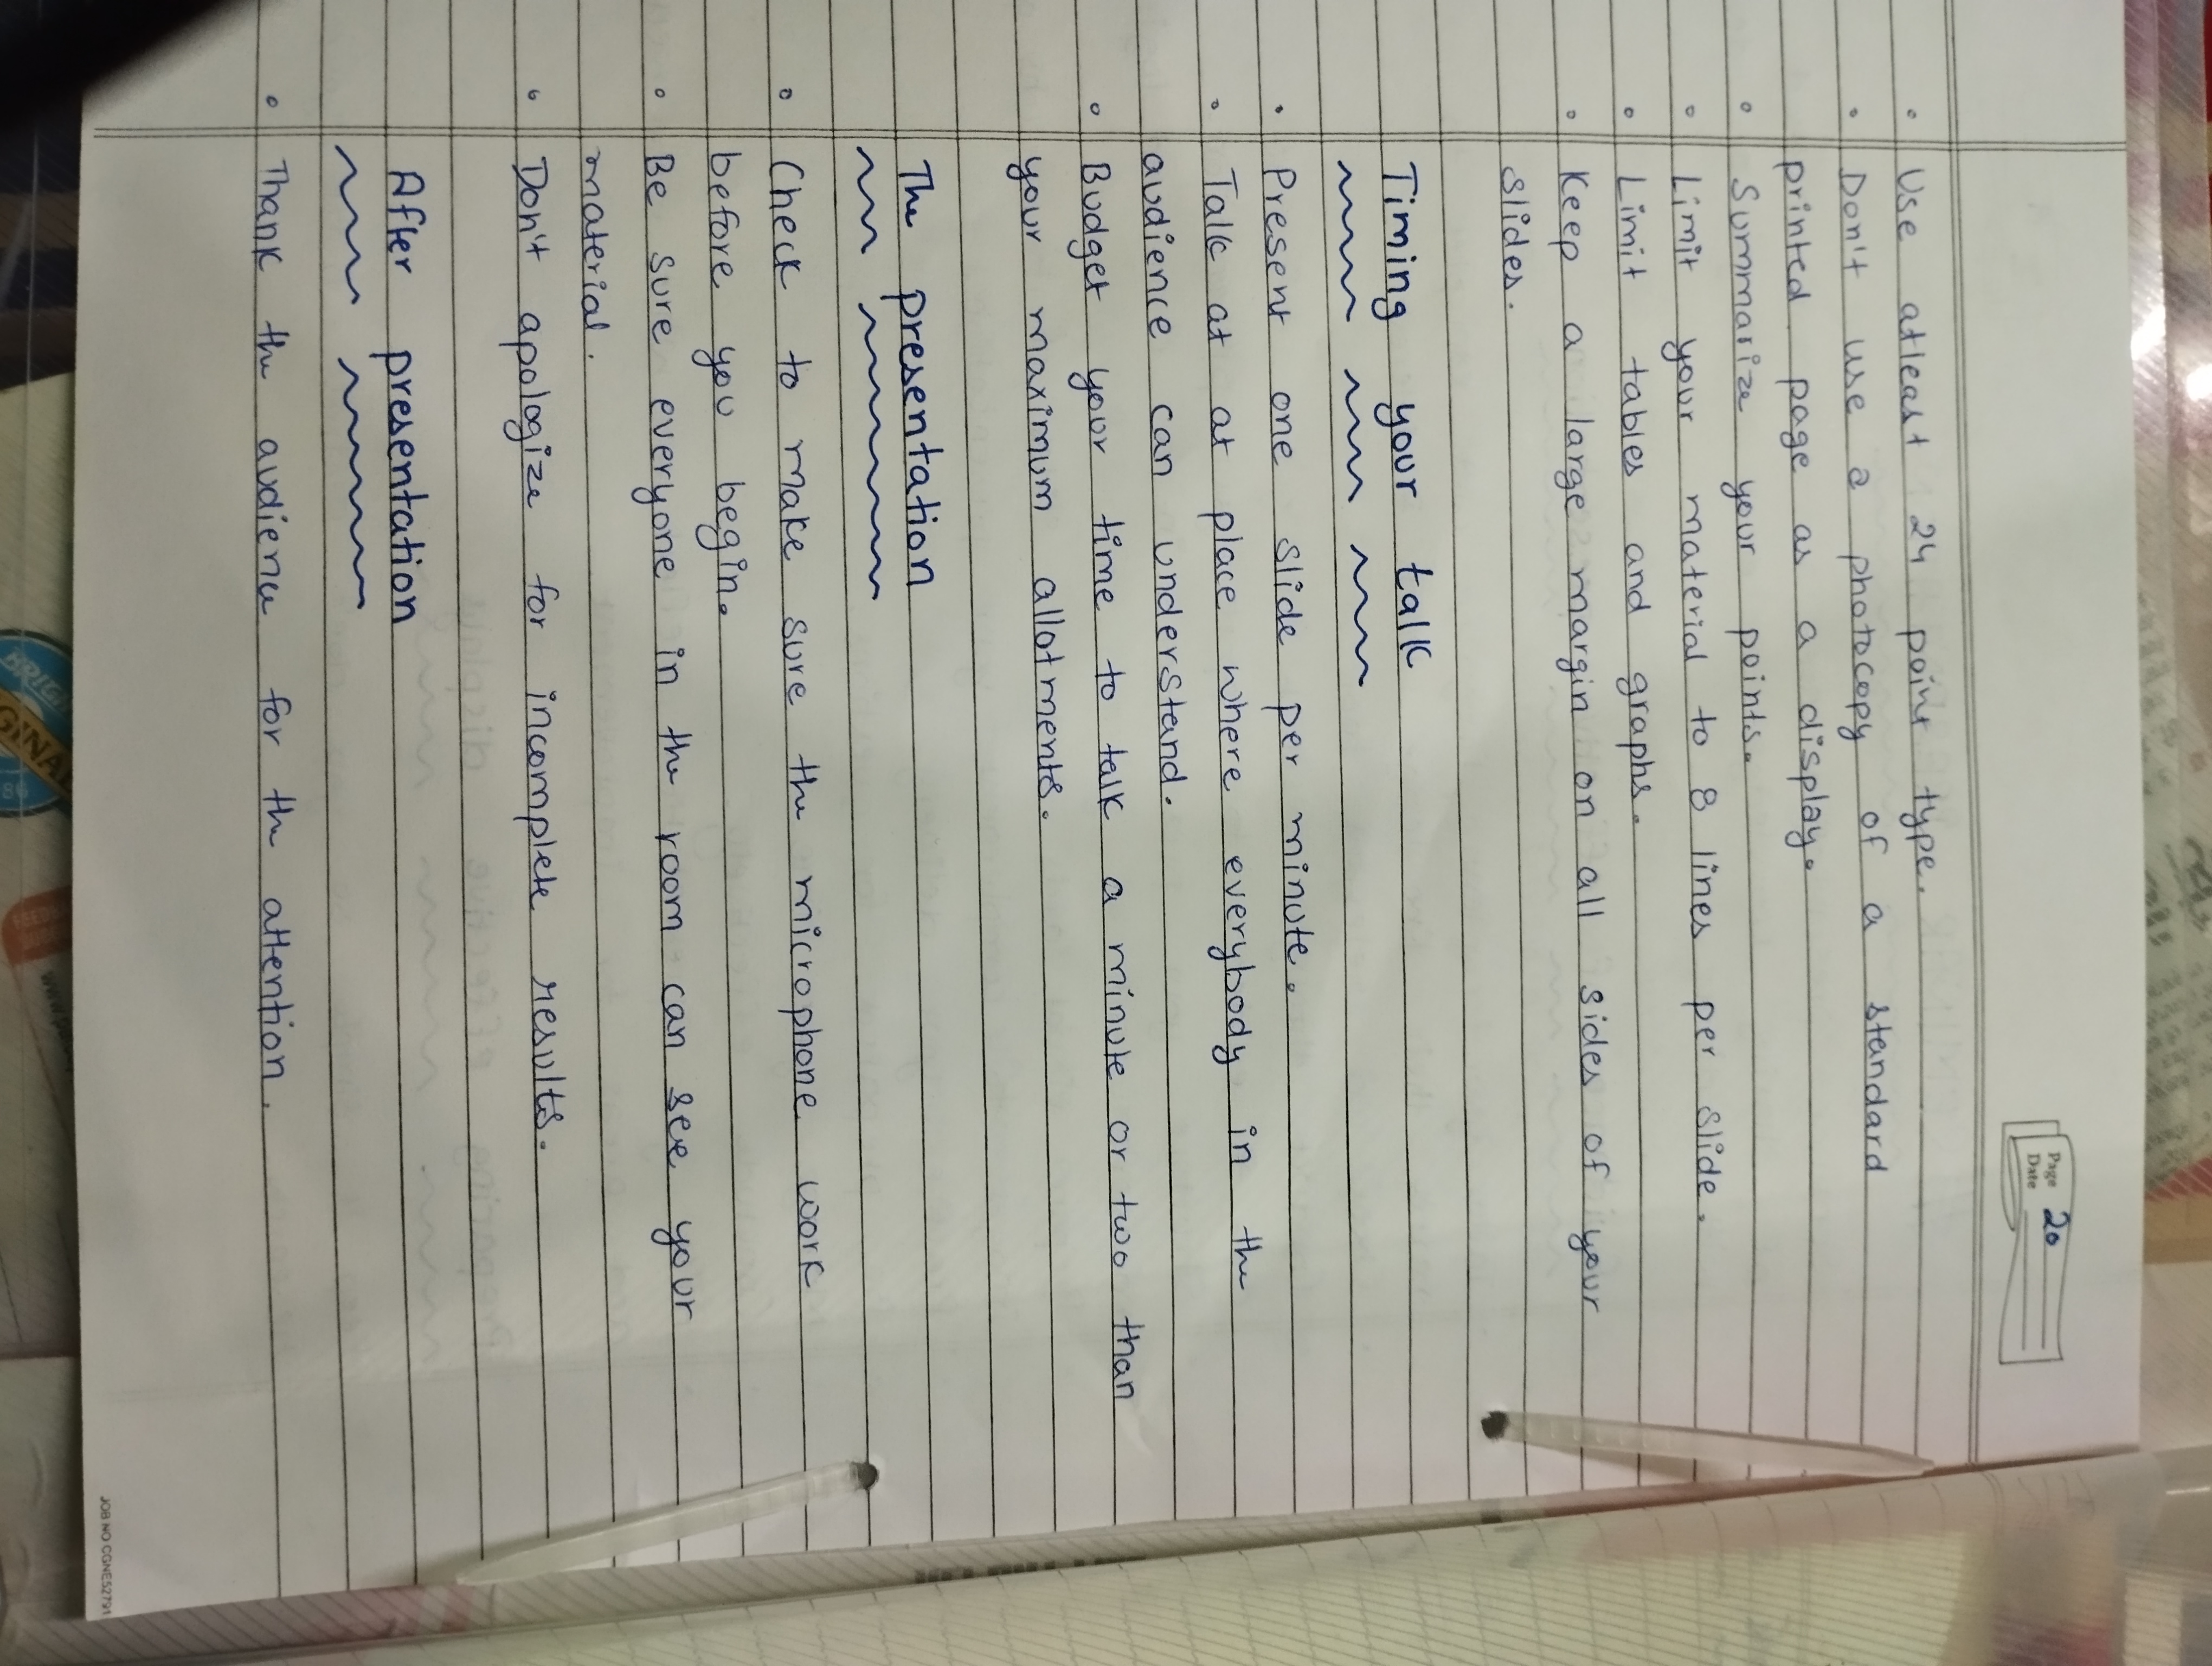 Page 20
Date
° Use atleast 24 point type.
° Don't use a photocopy of a standard
printed page as a display.
° Summarize your points.
° Limit your material to 8 lines per slide.
° Limit tables and graphs.
° Keep a large margin on all sides of your
slides.
Timing your talk
° Present one slide per minute.
° Talk at at place where everybody in the
audience can understand.
° Budget your time to talk a minute or two than
your maximum allotments.
The presentation
° Check to make sure the microphone work
before you begin.
° Be sure everyone in the room can see your
material.
° Don't apologize for incomplete results.
After presentation
° Thank the audience for the attention.
JOB NO CGNE52791